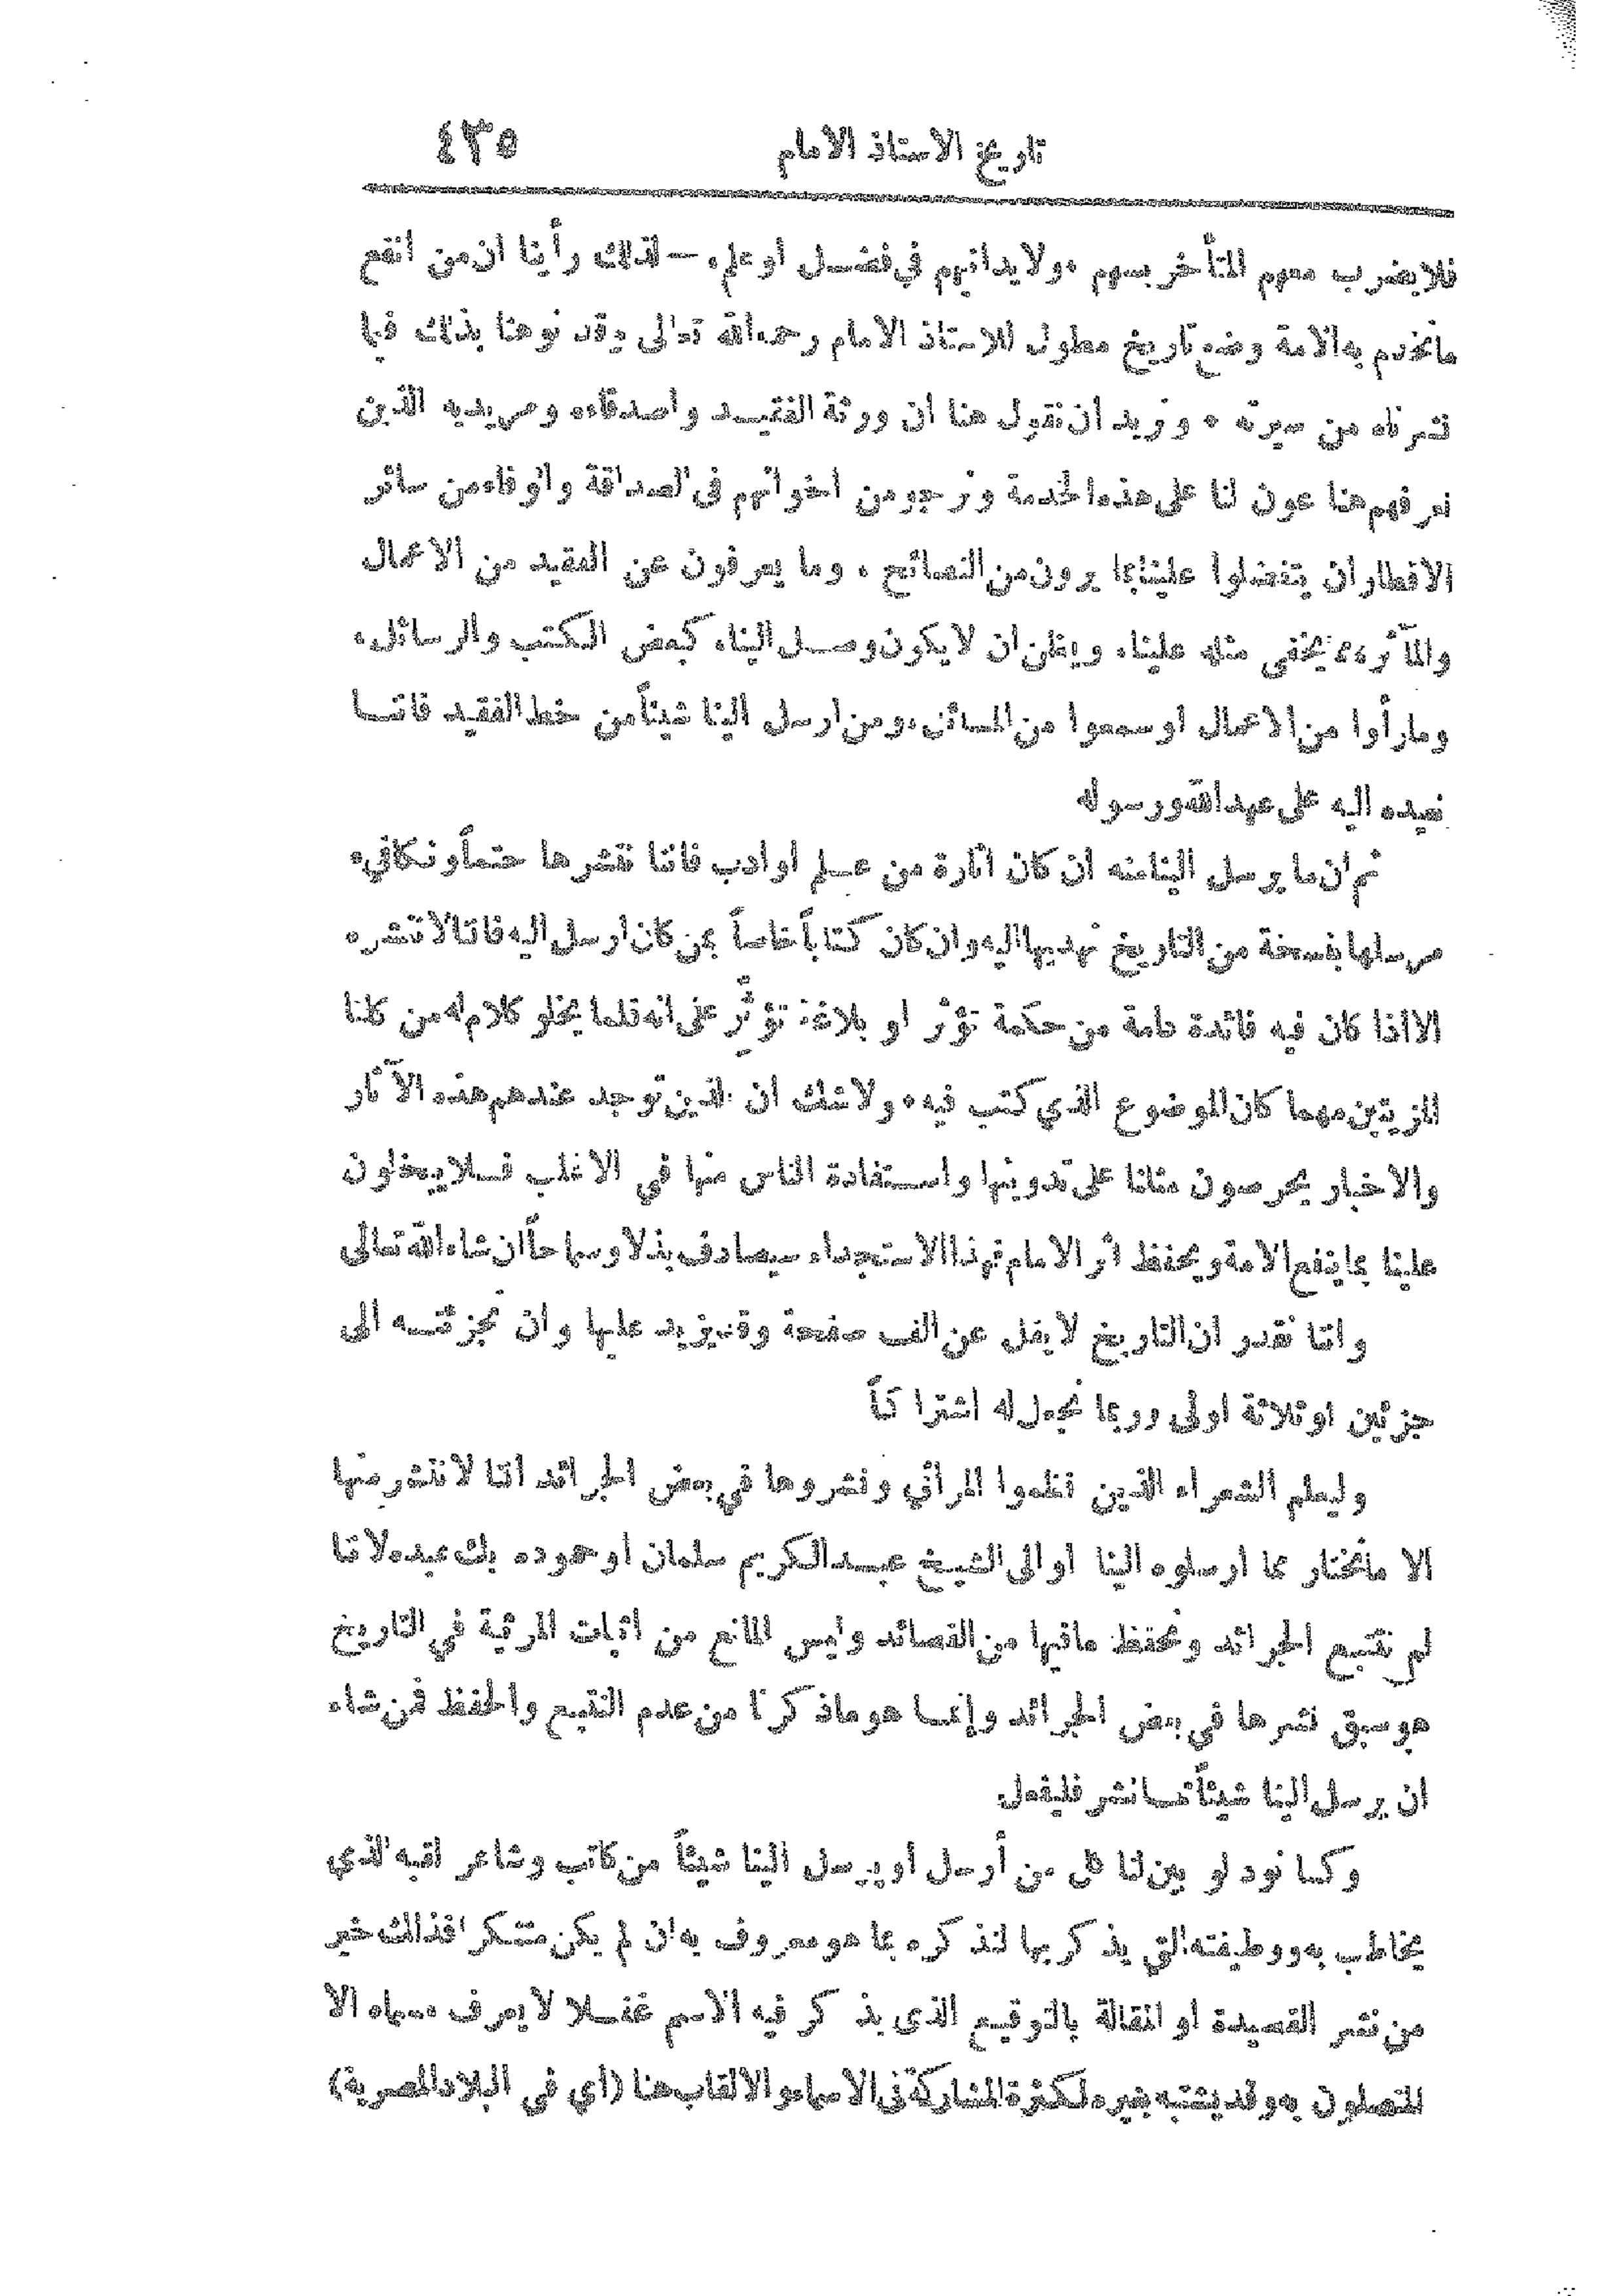 تاريخ الاستاذ الامام ٤٣٥
فلا يضرب معهم المتأخر بسهم ٠ ولا يدانيهم في فضل او علم ٠ — لذلك رأينا ان من انفع
ما نخدم به الامة وضع تاريخ مطول للاستاذ الامام رحمه الله تعالى وقد نوهنا بذلك فيما
نشرناه من سيرته ٠ ونريد أن نقول هنا ان ورثة الفقيد واصدقاءه ومريديه الذين
نعرفهم هنا عون لنا على هذه الخدمة ونرجو من اخوانهم في الصداقة والوفاء من سائر
الاقطار ان يتفضلوا علينا بما يرون من النصائح ، وما يعرفون عن الفقيد من الاعمال
والمآثر ، مما يخفى مثله علينا، ويظن ان لا يكون وصل الينا، كبعض الكتب والرسائل،
وما رأوا من الاعمال او سمعوا من المسائل، ومن ارسل الينا شيئاً من خط الفقيد فاننا
نعيده اليه على عهد الله ورسوله
ثم ان ما يرسل الينا منه ان كان اثارة من علم او ادب فاننا ننشرها حتماً ونكافئ
مرسلها بنسخة من التاريخ نهديها اليه وان كان كتاباً خاصاً بمن كان ارسل اليه فاننا لا ننشره
الا اذا كان فيه فائدة عامة من حكمة تؤثر او بلاغة تؤثِّر على انه قلما يخلو كلام له من كلتا
المزيتين مهما كان الموضوع الذي كتب فيه ٠ ولا شك ان الذين توجد عندهم هذه الآثار
والاخبار يحرصون مثلنا على تدوينها واستفادة الناس منها في الاغلب فلا يبخلون
علينا بما ينفع الامة ويحفظ اثر الامام فهذا الاستجداء سيصادف بذلا وسماحاً ان شاء الله تعالى
واننا نقدر ان التاريخ لا يقل عن الف صفحة وقد يزيد عليها وان تجزئته الى
جزئين او ثلاثة اولى وربما نجعل له اشتراكاً
وليعلم الشعراء الذين نظموا المراثي ونشروها في بعض الجرائد اننا لا ننشر منها
الا ما نختار مما ارسلوه الينا او الى الشيخ عبد الكريم سلمان او حموده بك عبده لاننا
لم نتتبع الجرائد ونحفظ ما فيها من القصائد وليس المانع من اثبات المرثية في التاريخ
هو سبق نشرها في بعض الجرائد وإنما هو ما ذكرنا من عدم التتبع والحفظ فمن شاء
ان يرسل الينا شيئاً مما نشر فليفعل
وكما نود لو بين لنا كل من أرسل او يرسل الينا شيئاً من كاتب وشاعر لقبه الذي
يخاطب به ووظيفته التي يذكر بها لنذكره بما هو معروف به ان لم يكن متنكرا فذلك خير
من نشر القصيدة او المقالة بالتوقيع الذي يذكر فيه الاسم غفلا لا يعرف مسماه الا
المتصلون به وقد يشتبه بغيره لكثرة المشاركة في الاسماء والالقاب هنا (أي في البلاد المصرية)